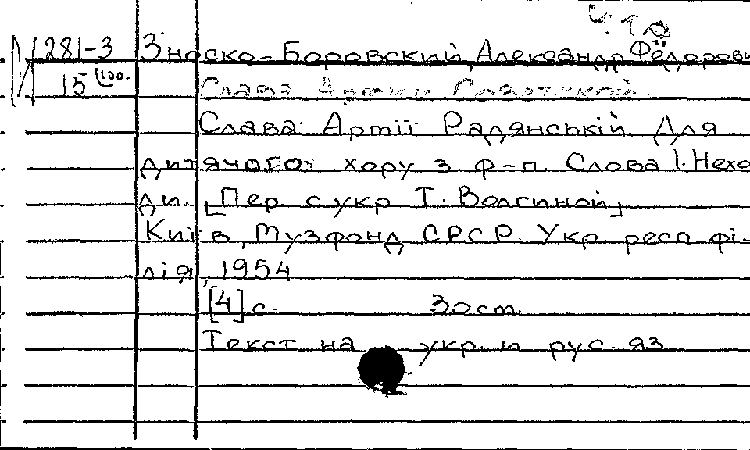 281-3 Зноско-Боровский, Александр Фёдорови
15
Слава Армии Советской
Слава Армії Радянській. Для
дитячого хору з ф-п. Слова І. Нехо
ди. [Пер. с укр. Т. Волгиной]
Київ, Музфонд СРСР. Укр. респ. фі-
лія, 1954
[4] с. 30 cm
Текст на укр. и рус. яз.